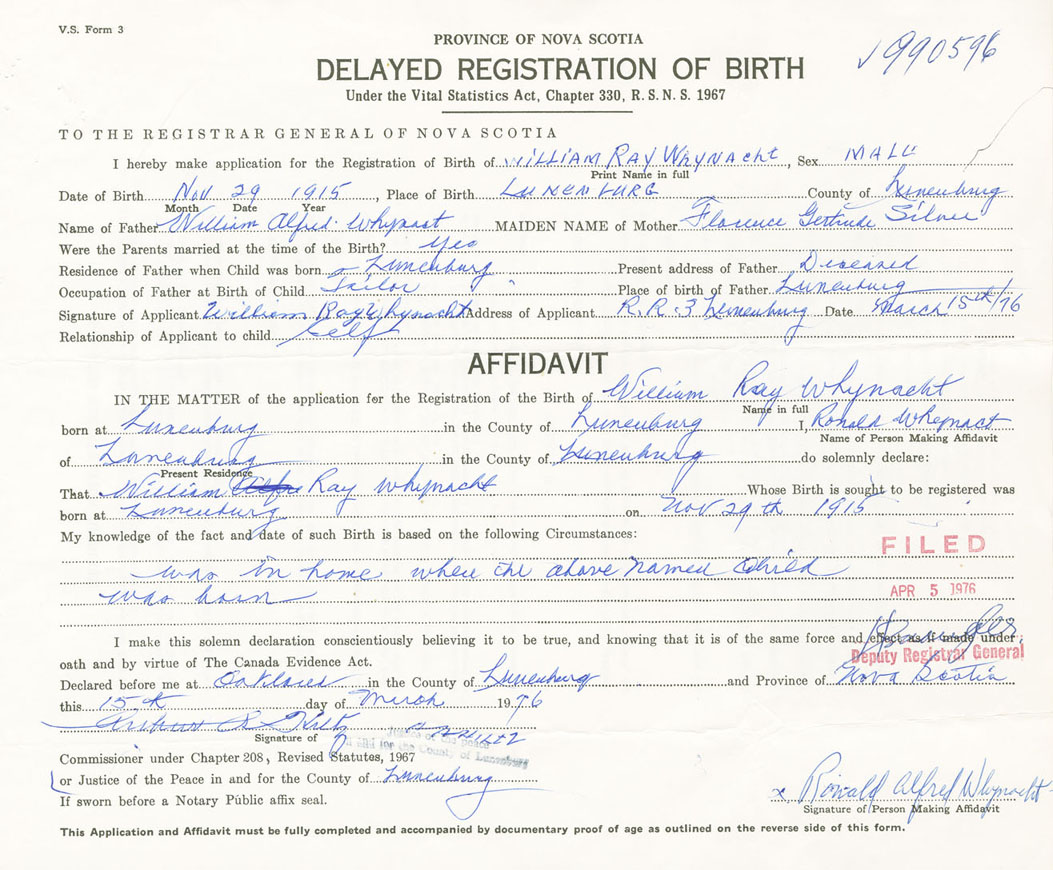 V.S. Form 3
PROVINCE OF NOVA SCOTIA
990596
DELAYED REGISTRATION OF BIRTH
Under the Vital Statistics Act, Chapter 330, R.S.N.S. 1967
TO THE REGISTRAR GENERAL OF NOVA SCOTIA
I hereby make application for the Registration of Birth of WILLIAM RAY WHYNACHT, Sex MALE
Print Name in full
Date of Birth Nov 29 1915, Place of Birth LUNENBURG County of Lunenburg
Month Date Year
Name of Father William Alfred Whynact MAIDEN NAME of Mother Florence Gertrude Silver
Were the Parents married at the time of the Birth? Yes
Residence of Father when Child was born Lunenburg Present address of Father Deceased
Occupation of Father at Birth of Child Tailor Place of birth of Father Lunenburg
Signature of Applicant William Ray Whynacht Address of Applicant R.R.3 Lunenburg Date March 15th/76
Relationship of Applicant to child Self
AFFIDAVIT
IN THE MATTER of the application for the Registration of the Birth of William Ray Whynacht
Name in full
born at Lunenburg in the County of Lunenburg I, Ronald Whynact
Name of Person Making Affidavit
of Lunenburg in the County of Lunenburg do solemnly declare:
Present Residence
That William Ray Whynacht Whose Birth is sought to be registered was
born at Lunenburg on Nov 29th 1915
My knowledge of the fact and date of such Birth is based on the following Circumstances:
FILED
was in home where the above named child
was born
APR 5 1976
I make this solemn declaration conscientiously believing it to be true, and knowing that it is of the same force and effect as if made under
oath and by virtue of The Canada Evidence Act.
Deputy Registrar General
Declared before me at in the County of Lunenburg and Province of Nova Scotia
this 15th day of March 1976
Signature of
Justice of the peace
in and for the County of Lunenburg
Commissioner under Chapter 208, Revised Statutes, 1967
or Justice of the Peace in and for the County of Lunenburg
If sworn before a Notary Public affix seal.
x Ronald Alfred Whynacht
Signature of Person Making Affidavit
This Application and Affidavit must be fully completed and accompanied by documentary proof of age as outlined on the reverse side of this form.